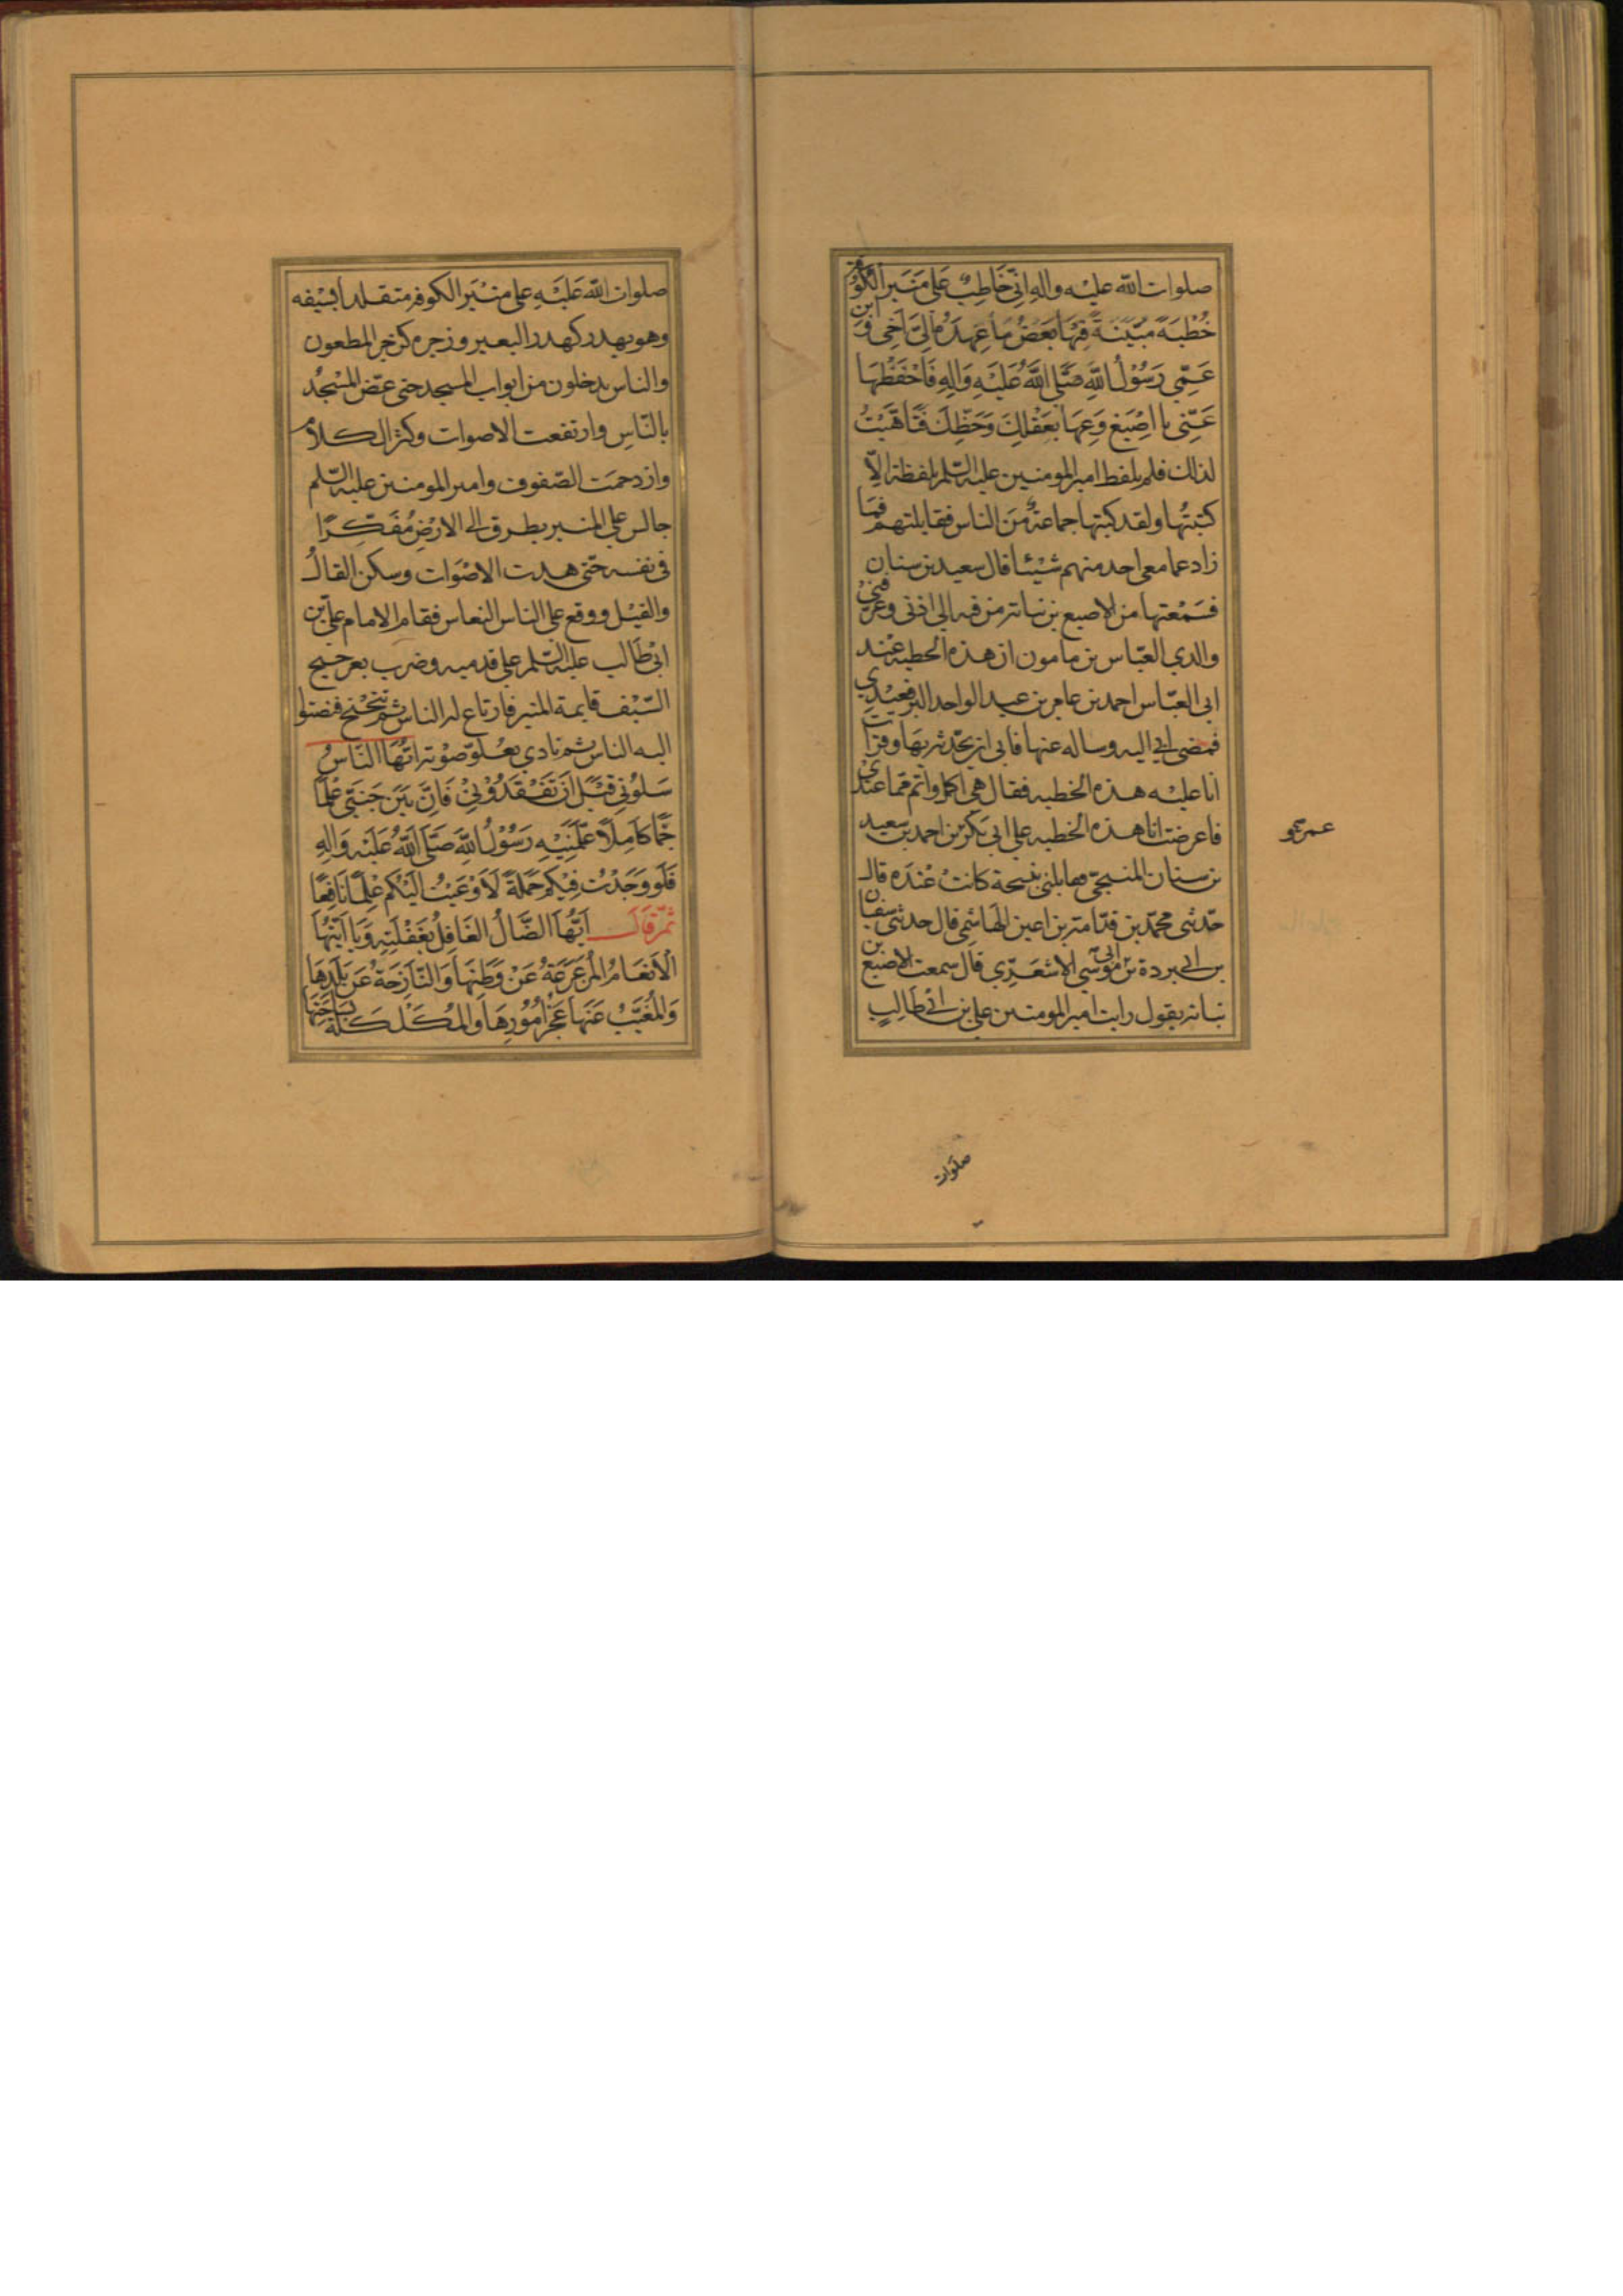 صلوات الله عليه واله اني خَاطِبٌ عَلى مَنبَر الكوفة
خُطْبَةً مبَيّنَةً فِيهَا بَعضُ مَا عَهِدَهُ اِلَيَّ اَخِي وَ ابن
عَمِّي رَسُوْلُ اللّٰهِ صَلَّى اللّٰهُ عَلَيْهِ وَالِهِ فَاحْفَظْهَا
عَنِّى يا اصْبَغ وَعِهَا بعَقْلِكَ وَحَفِظِكَ فَتَاَهَّبْتُ
لذلك فلم يلفظ امير المومنين عليه السّلم بلفظة الّا
كتبتُها ولقد كتبتها جماعةٌ مِنَ الناس فقابلتهم فمَا
زاد عما معى احد منهم شيْئا قال سعيد بن سنان
فسَمْعتها من الاصبع بن نباته من فيه الى اذنى وعرّفنى
والدي العبّاس بن مامون ان هذه الخطبه عند
ابى العبّاس احمد بن عامر بن عبد الواحد البرقعيدي
فمضى ابي اليه وساله عنها فابى ان يحّدثه بهَا وقرات
انا عليْه هذه الخطبه فقال هى اكمل واتم ممّا عندي
فاعرضت انا هذه الخطبه على ابى بَكر بن احمد بن سعيد
بن سنان المنبجىّ فقابلنى بنسخة كانتْ عنْدَه قال
حّدثنى محمّد بن قدّامة بن اعين الهَاشِمى قال حدثنى سفيان
بن ابى بردة بن ابى موسى الاشعَرِي قال سمعت الاصبغ بن
نباته يقول رايت امير المومنين على بن ابى طَالِبٍ
عمرو
صلوات
صلوات الله عَليْهِ على منْبَر الكوفه متقلدا بسَيْفه
وهو يهدر كهدر البعير وزجره كزجر المطعون
والناس يدخلون من ابواب المسجد حتى غصّ المسْجدُ
بالنّاسِ وارتفعت الاصوات وكثر الكلام
وازدحمَت الصّفوف وامير المومنين عليه السّلم
جالس على المنبر يطرق الى الارْضِ مُفَكِّرًا
في نفسه حتّى هدت الاصْوَات وسكن القالُ
والقيْل ووقع على الناس النعاس فقام الامام علىّ بن
ابى طَالب عليه السّلم على قدميه وضرب بعرجيح
السّيْف قايمة المنبر فارتاع له الناس ثم تنحْنح فنصتوا
اليه الناس ثم نادي بعُلوّ صوْته اَيُّهَا النّاسُ
سَلُوْنِي قَبْلَ اَنْ تَفْقَدُوْنِيْ فَاِنَّ بَيْنَ جَنْبَيَّ عِلْمًا
جَمًّا كَامِلًا عَلَّمَنِيْهِ رَسُوْلُ اللّٰهِ صَلَّى اللّٰهُ عَلَيْهِ وَالِهِ
فَلَو وَجَدْتُ فِيْكم حَمَلَةً لَاَوْعَيْتُ اِلَيْكُم عِلْمًا نَافِعًا
ثُمّ قَالَ اَيُّهَا الضَّالُ الغَافِلُ بغَفْلَتِهِ وَيَا اَيَّتُهَا
الْاَنْعَامُ المُزَعزَعَةُ عَنْ وَطَنِهَا وَالنَّازِحَةُ عَنْ بَلَدِهَا
وَالْمُغَيَّبُ عَنْهَا عَجْزُ اُمُوْرِهَا وَالمُكَلْكَلَةُ بسَاحَتِهَا